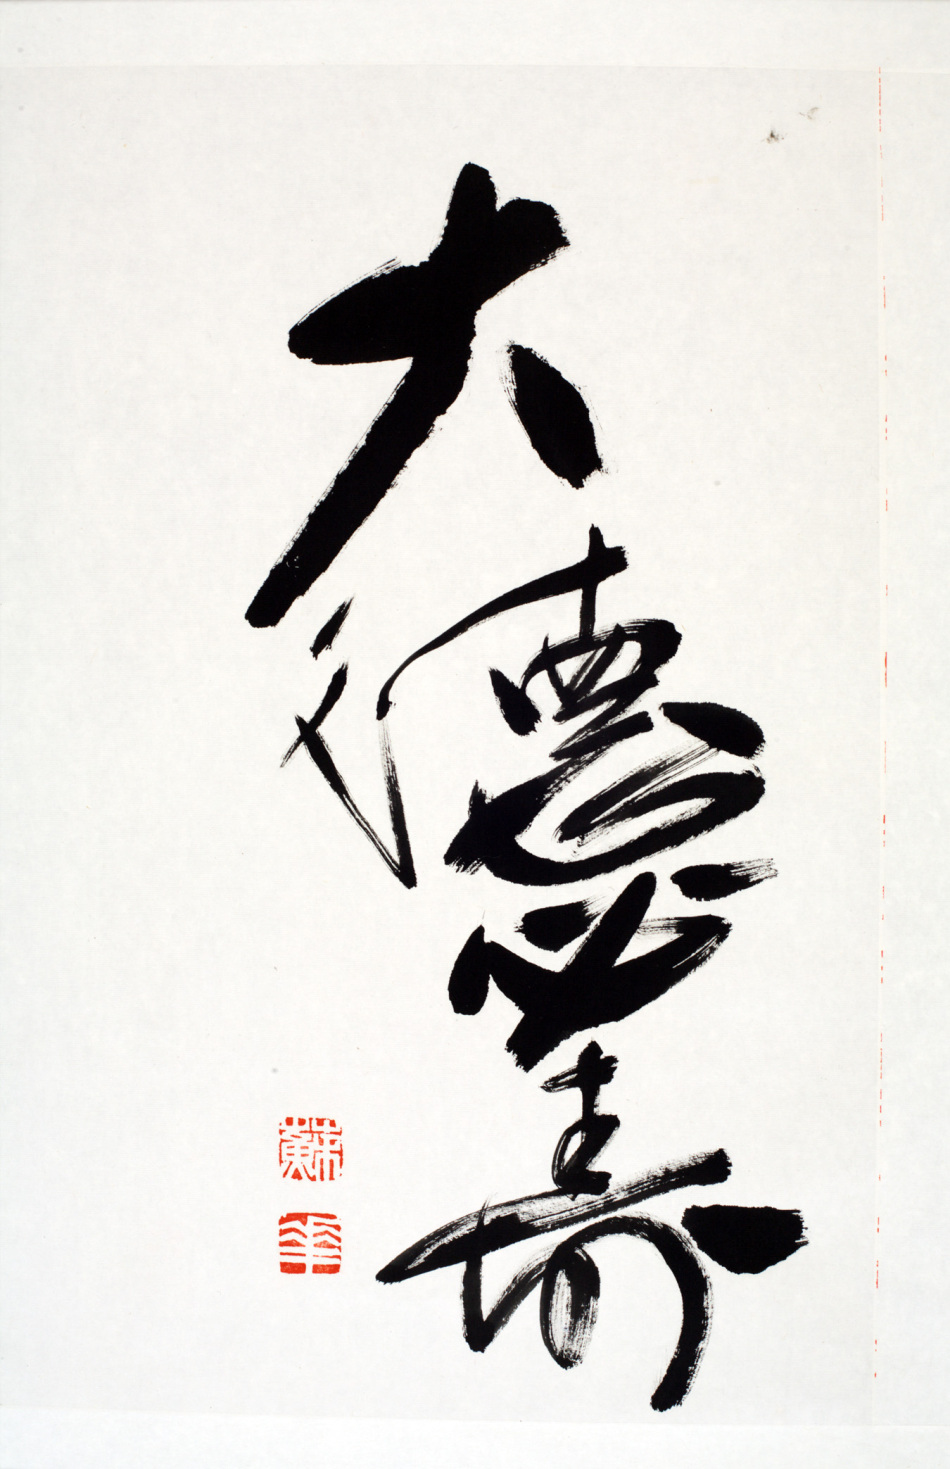 大德必壽
蘇